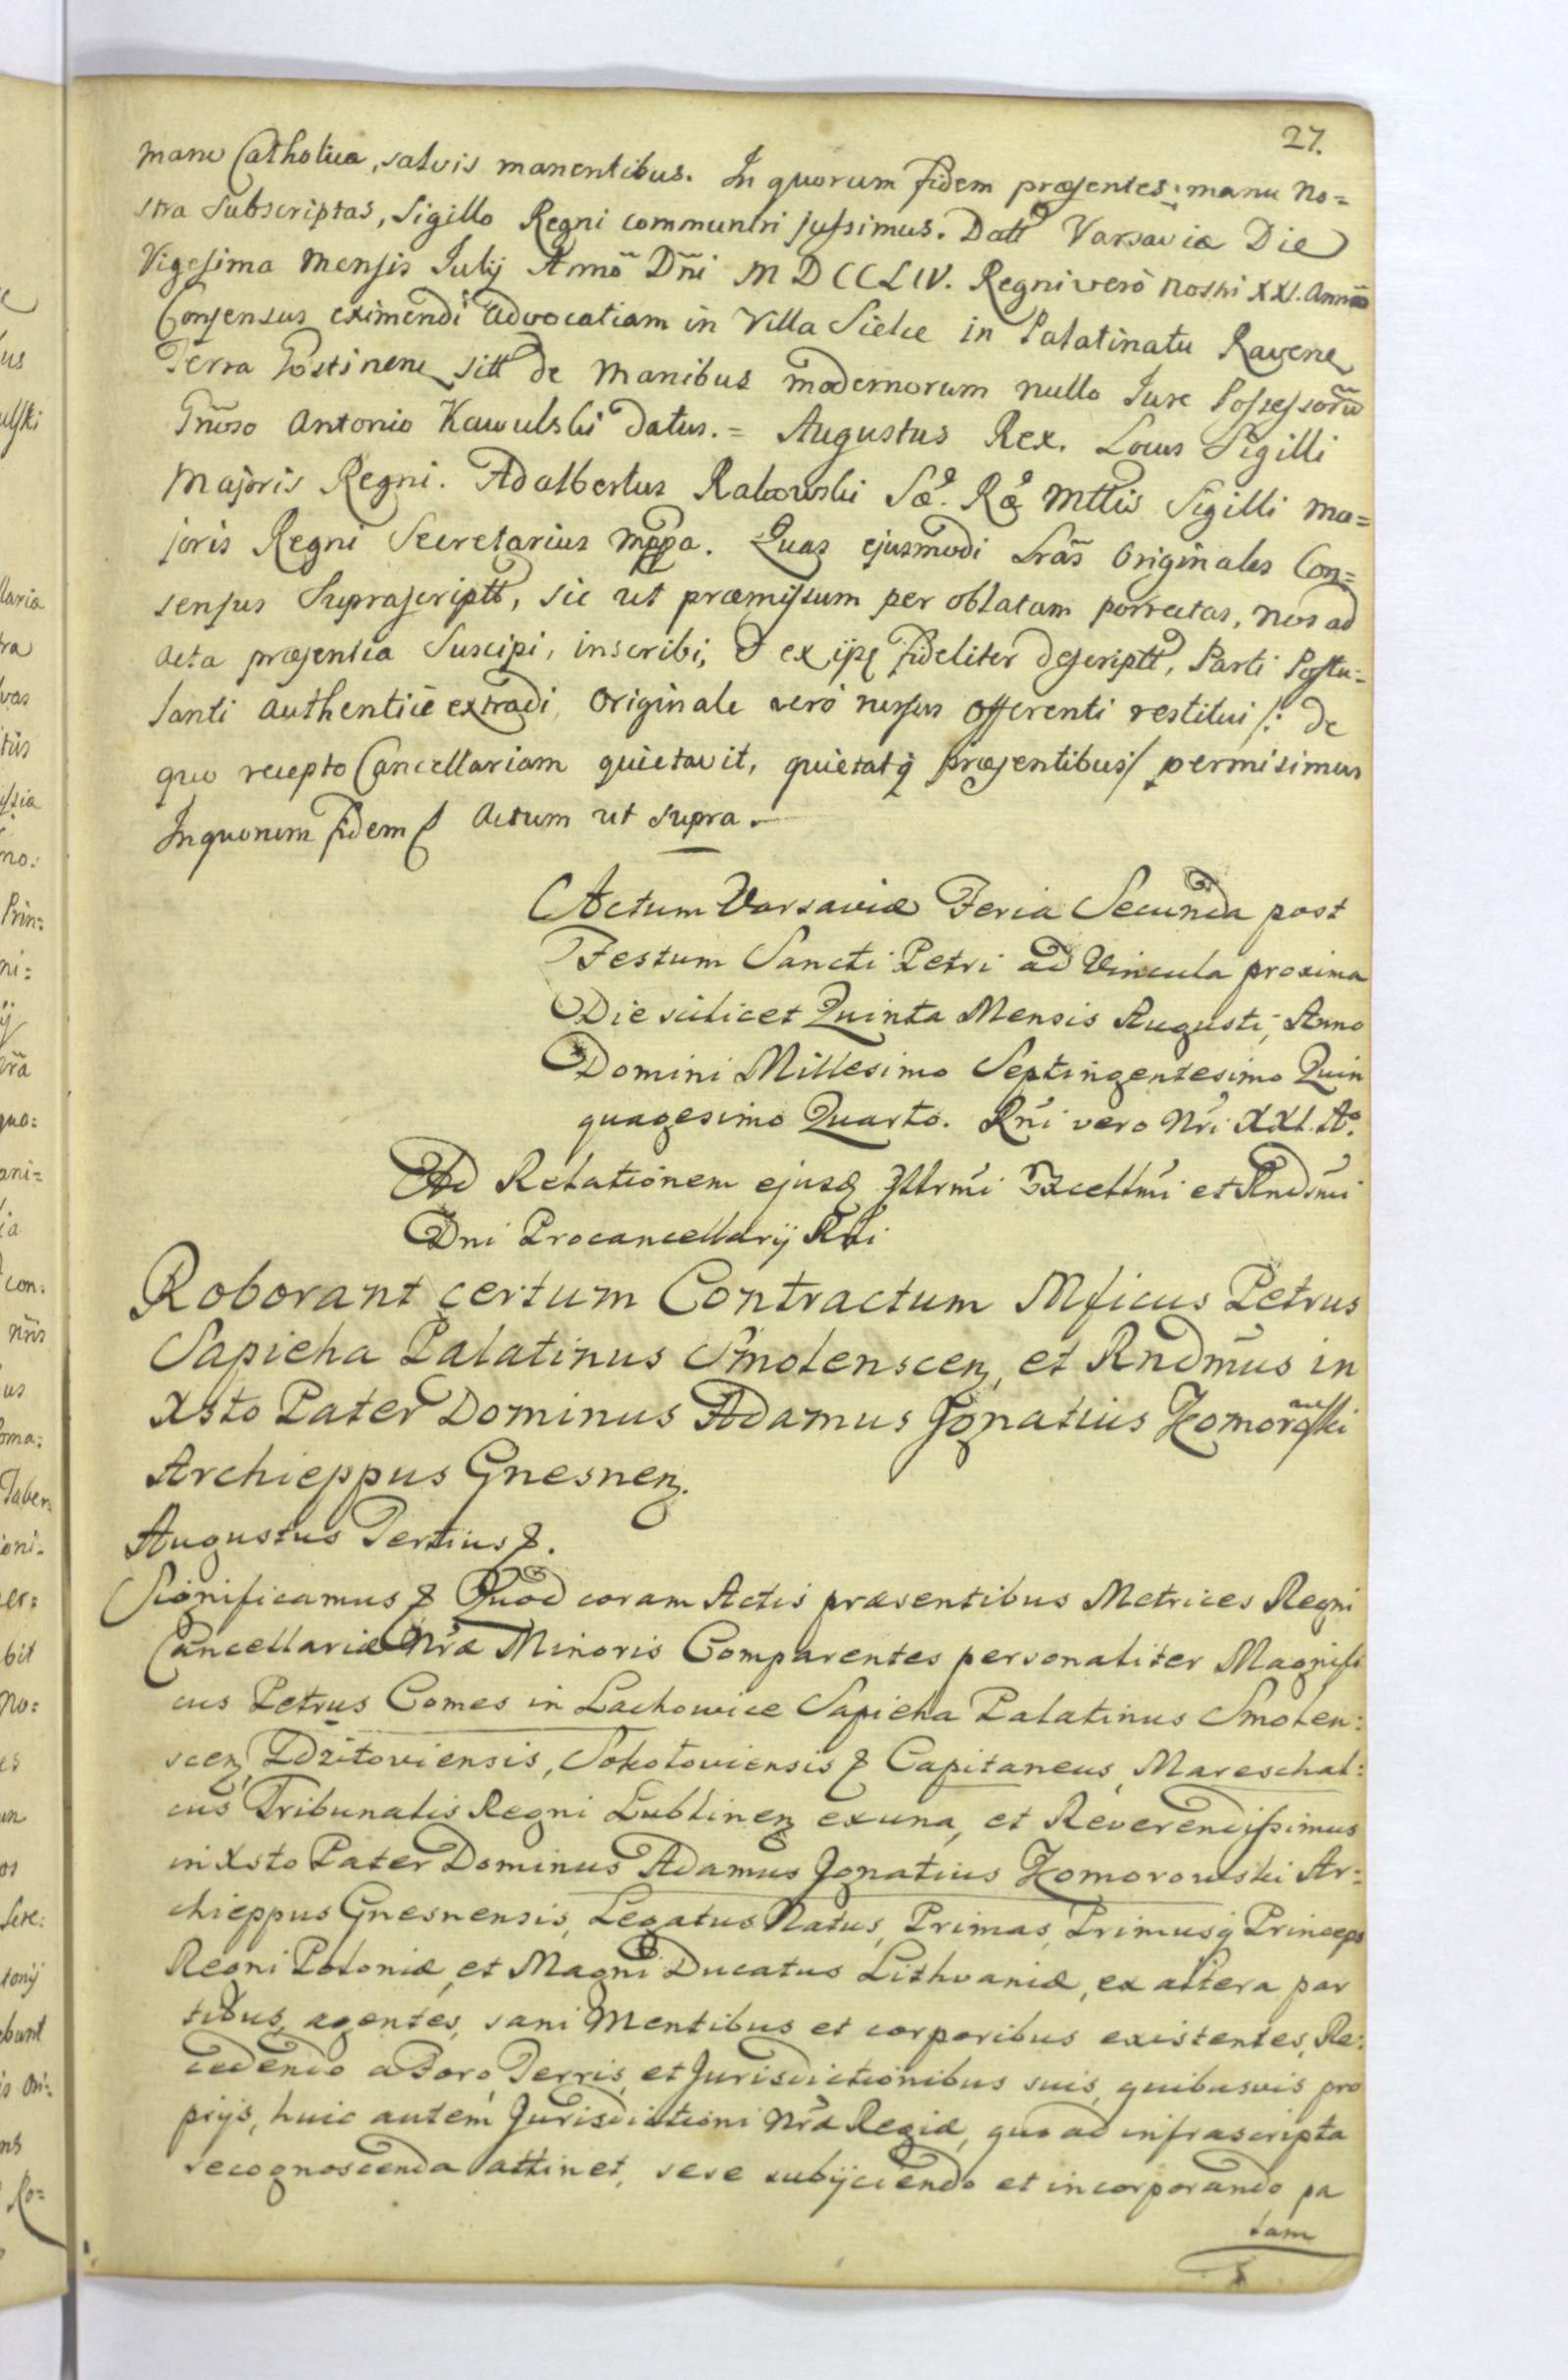 27.
manæ Catholicæ, salvis manentibus. In quorum fidem præsentes manu No=
stra Subscriptas, Sigillo Regni communiri jussimus. Datt Varsaviæ Die
Vigesima Mensis Julij Anno Dñi MDCCLIV. Regni verò nostri XXI. Anno
Consensus eximendi advocatiam in Villa Sielce in Palatinatu Ravenę
Terra Gostinenę sitt de Manibus modernorum nullo Jure Possessorũ
Gnõso Antonio Kawulski datus. = Augustus Rex. Locus Sigilli
Majoris Regni. Adalbertus Rakowski Sæ. Ræ Mttis Sigilli Ma=
joris Regni Secretarius mppa. Quas ejusmodi Lrãs Originales Con=
sensus Suprascriptt, sic ut præmissum per oblatam porrectas, nos ad
Acta præsentia Suscipi, inscribi, & ex ijsę fideliter descriptt, Parti Postu=
lanti authenticè extradi, Originale verò rursus Offerenti restitui /: de
quo recepto Cancellariam quietavit, quietatq̃ præsentibus/ permisimus
In quorum fidem & Actum ut supra.
Actum Varsaviæ Feria Secunda post
Festum Sancti Petri ad Vincula proxima
Die scilicet Quinta Mensis Augusti, Anno
Domini Millesimo Septingentesimo Quin
quagesimo Quarto. Rñi vero Nri XXI. Aº.
Ad Relationem ejusdę Jllrmi Excellmi et Rndmi
Dni Procancellarij Rni
Roborant certum Contractum Mficus Petrus
Sapieha Palatinus Smolenscenę, et Rndmus in
Xsto Pater Dominus Adamus Ignatius Komorowski
Archieppus Gnesnenę.
Augustus Tertius &.
Significamus & Quod coram Actis præsentibus Metrices Regni
Cancellariæ Nræ Minoris Comparentes personaliter Magnifi
cus Petrus Comes in Lachowice Sapieha Palatinus Smolen:
scenę, Zdzitoviensis, Sokołoviensis & Capitaneus, Mareschal:
cus Tribunalis Regni Lublinenę ex una, et Reverendissimus
in Xsto Pater Dominus Adamus Ignatius Komorowski Ar=
chieppus Gnesnensis, Legatus Natus, Primas, Primusq̃ Princeps
Regni Poloniæ, et Magni Ducatus Lithvaniæ, ex altera par
tibus, agentes, sani Mentibus et corporibus existentes, Re:
cedendo a Foro, Terris, et Jurisdictionibus suis, quibusvis pro
prijs, huic autem Jurisdictioni Nræ Regiæ, quo ad infrascripta
recognoscenda attinet, sese subijciendo et incorporando pa
lam